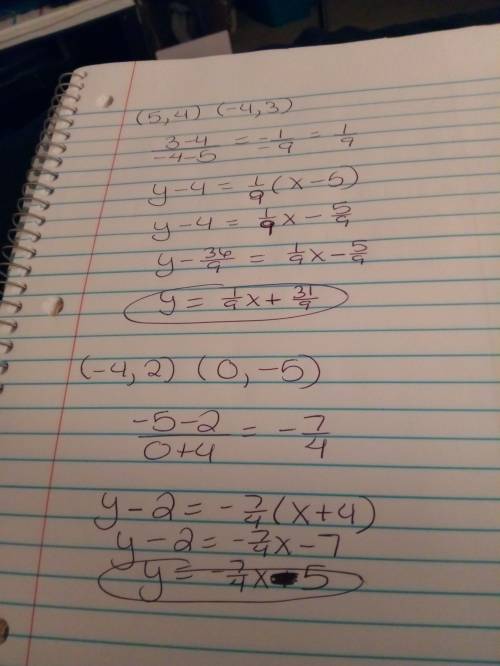 (5,4) (-4,3)
3-4/-4-5 = -1/-9 = 1/9
y-4 = 1/9(x-5)
y-4 = 1/9x - 5/9
y - 36/9 = 1/9x - 5/9
y = 1/9x + 31/9
(-4,2) (0,-5)
-5-2/0+4 = -7/4
y-2 = -7/4(x+4)
y-2 = -7/4x-7
y = -7/4x-5